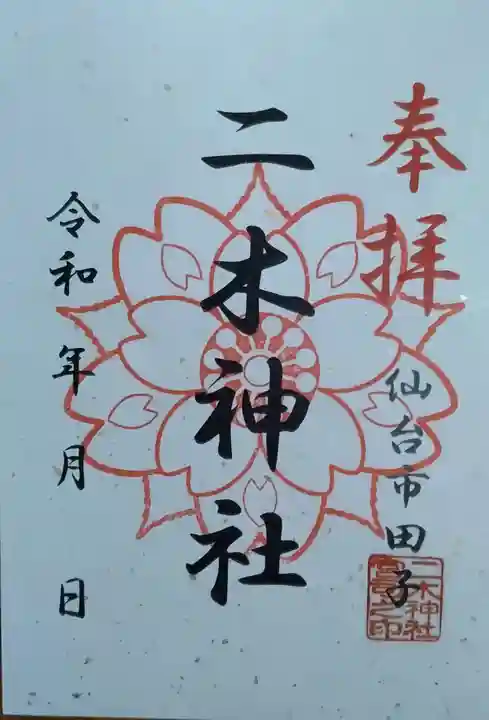 奉拝
仙台市田子
二木神社
令和 年 月 日
二木神社